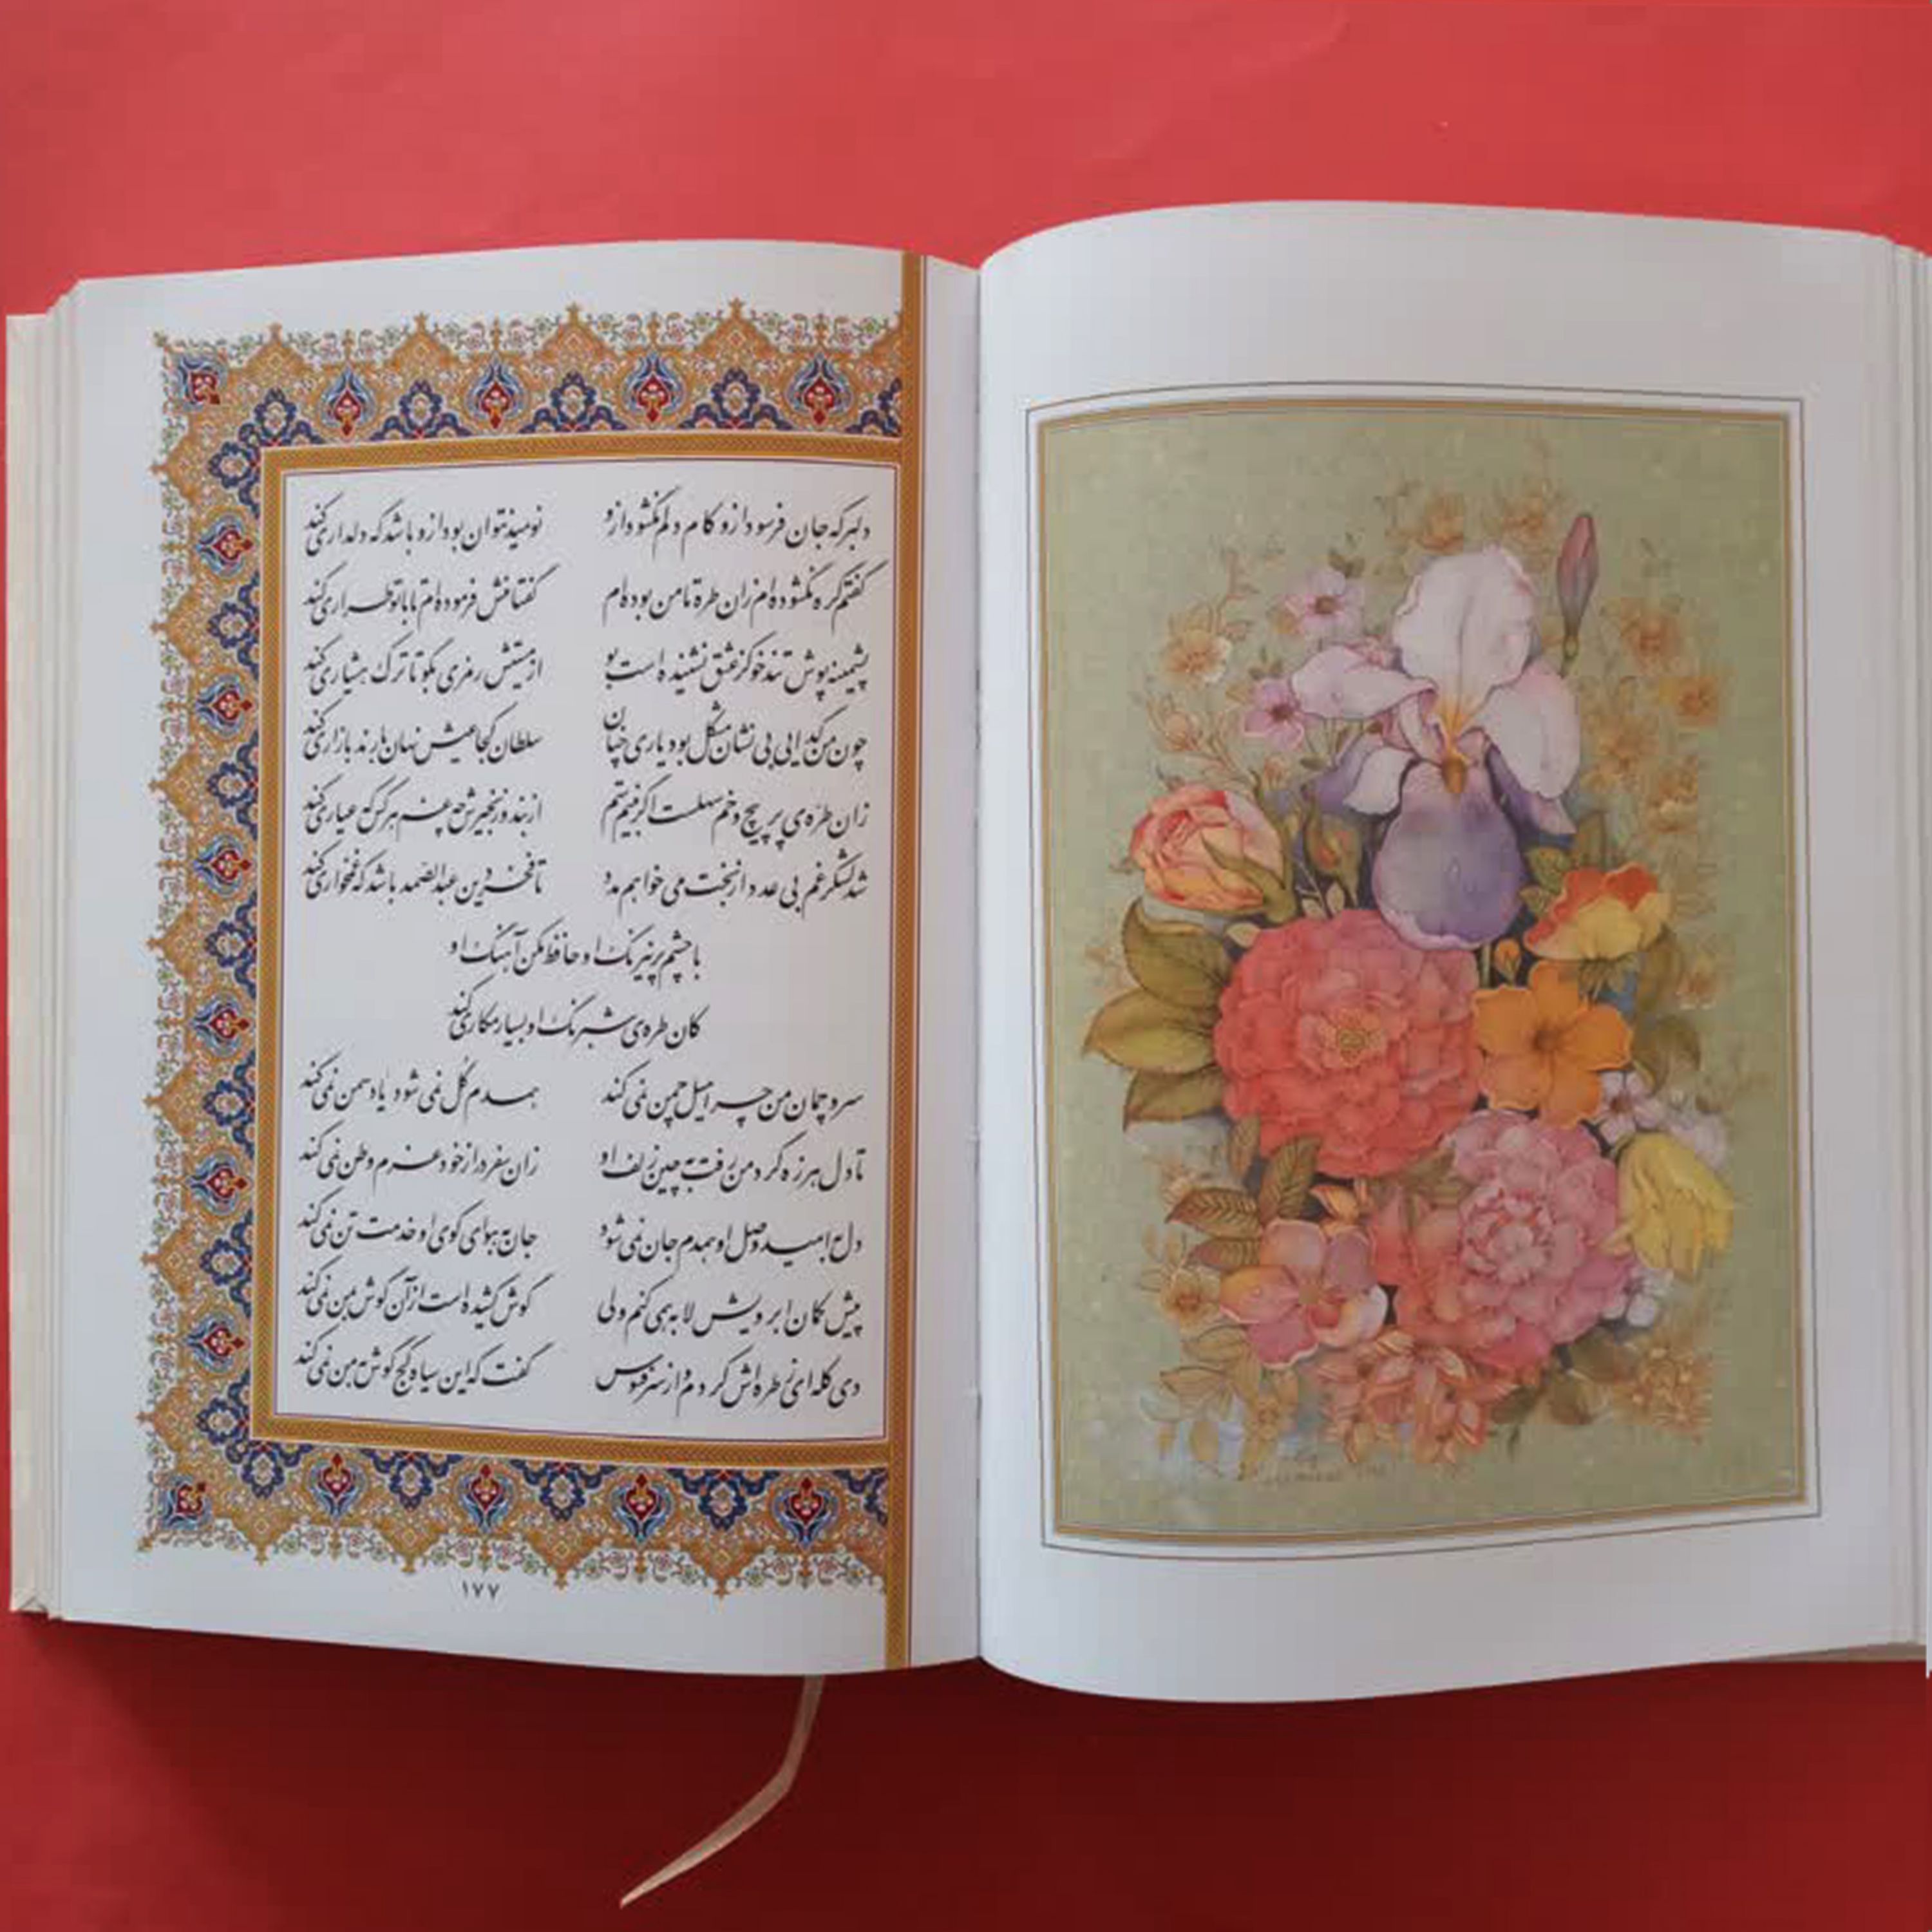 دلبر که جان فرسود ازو کام دلم نگشود ازو    نومید نتوان بود ازو باشد که دلداری کند
گفتم گره نگشوده‌ام زان طره تا من بوده‌ام    گفتا منش فرموده‌ام تا با تو طراری کند
پشمینه‌پوش تندخو کز عشق نشنیده است بو    از مستیش رمزی بگو تا ترک هشیاری کند
چون من گدایی بی نشان مشکل بود یاری چنان    سلطان کجا عیش نهان با رند بازاری کند
زان طره‌ی پر پیچ و خم سهلست اگر بینم ستم    از بند و زنجیرش چه غم هر کس که عیاری کند
شد لشکر غم بی عدد از بخت می خواهم مدد    تا فخر دین عبدالصّمد باشد که غمخواری کند
با چشم پر نیرنگ او حافظ مکن آهنگ او
کان طره‌ی شبرنگ او بسیار مکاری کند
سرو چمان من چرا میل چمن نمی کند    همدم گُل نمی شود یاد سمن نمی کند
تا دل هرزه گرد من رفت به چین زلف او    زان سفر دراز خود عزم وطن نمی کند
دل به امید وصل او همدم جان نمی شود    جان به هوای کوی او خدمت تن نمی کند
پیش کمان ابرویش لابه همی کنم ولی    گوش کشیده است از آن گوش به من نمی کند
دی گله‌ای ز طره‌اش کردم و از سر فسوس    گفت که این سیاه کج گوش به من نمی کند
۱۷۷